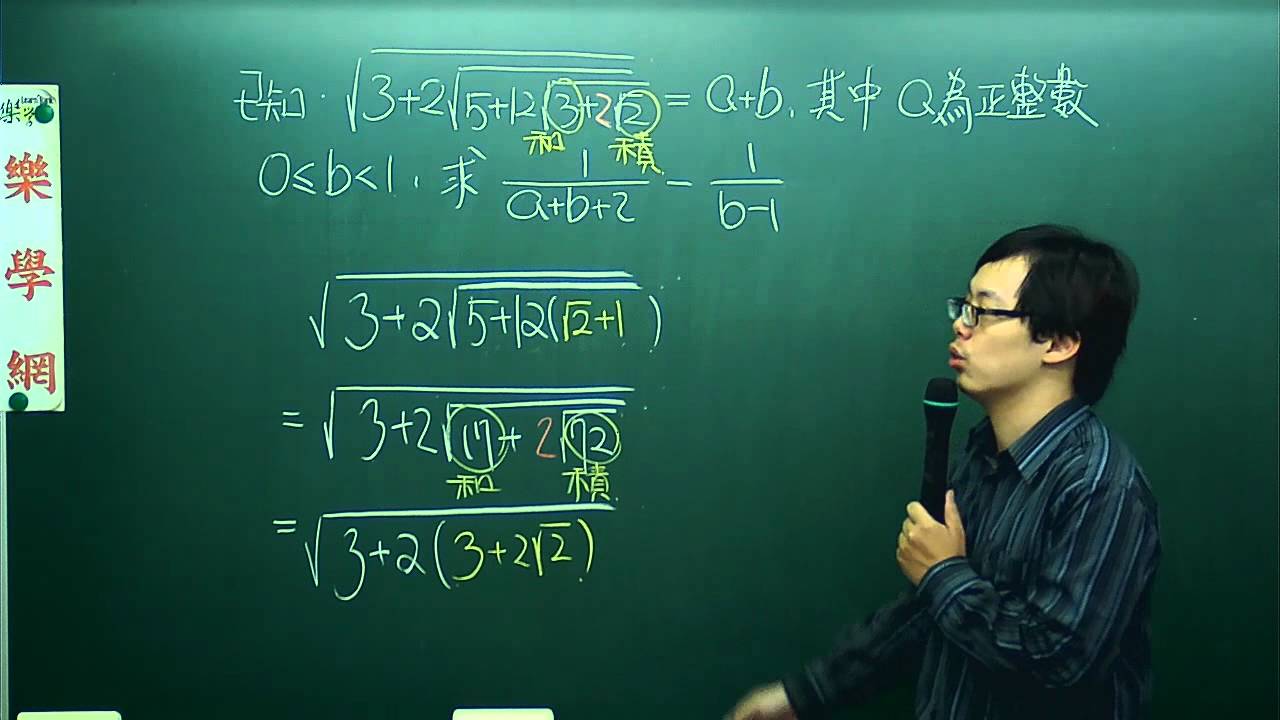 已知 · √(3+2√(5+12√(3+2√2))) = a+b, 其中 a為正整數
和 積
0≤b<1, 求 1/(a+b+2) − 1/(b−1)
√(3+2√(5+12(√2+1)))
= √(3+2√(17+2√72))
和 積
= √(3+2(3+2√2))
樂學
樂
學
網